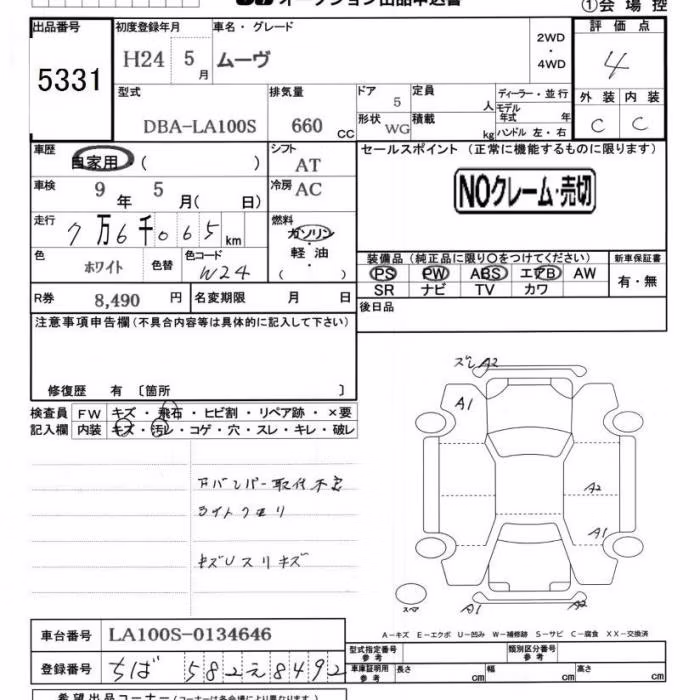 オークション出品申込書
①会場控
出品番号
5331
初度登録年月
H24 5月
車名・グレード
ムーヴ
2WD
・
4WD
評価点
4
型式
DBA-LA100S
排気量
660 CC
ドア
5
形状
WG
定員
人
積載
kg
ディーラー・並行
モデル年式 年
ハンドル 左・右
外装
C
内装
C
車歴
自家用 ( )
シフト
AT
車検
9年 5月( 日)
冷房
AC
走行
7万6千065km
燃料
ガソリン
・
軽油
( )
色
ホワイト
色替
色コード
W24
R券
8,490 円
名変期限 月 日
セールスポイント (正常に機能するものに限ります)
NOクレーム・売切
装備品 (純正品に限り○をつけてください)
PS PW ABS エアB AW
SR ナビ TV カワ
新車保証書
有・無
後日品
注意事項申告欄(不具合内容等は具体的に記入して下さい)
修復歴 有 〔箇所 〕
検査員
記入欄
FW キズ・飛石・ヒビ割・リペア跡・×要
内装 キズ・汚レ・コゲ・穴・スレ・キレ・破レ
Fバンパー取付不良
ライトクモリ
キズUスリキズ
ズレA2
A1
A2
A1
A1
A2
スペア
A-キズ E-エクボ U-凹み W-補修跡 S-サビ C-腐食 XX-交換済
車台番号
LA100S-0134646
登録番号
ちば 582 え 8492
型式指定番号
参考
類別区分番号
参考
車庫証明用
参考
長さ cm
幅 cm
高さ cm
希望出品コーナー(コーナーは各会場により異なります)